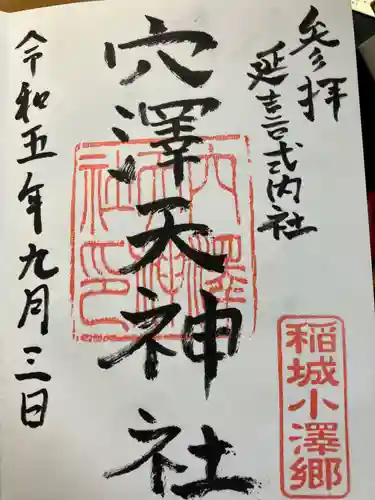 参拝
延喜式内社
穴澤天神社
令和五年九月三日
穴澤天神社印
稲城小澤郷